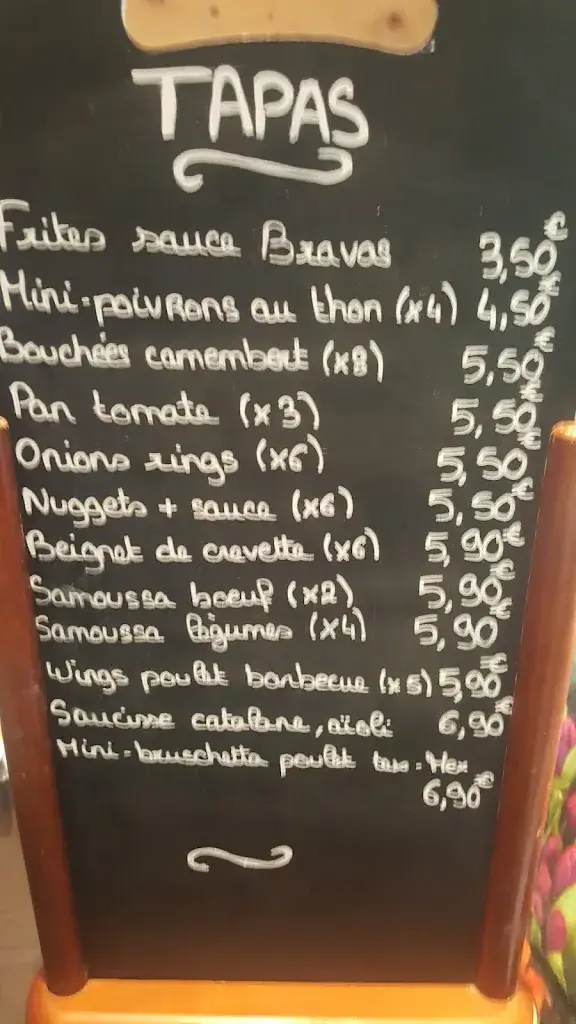 TAPAS
Frites sauce Bravas 3,50€
Mini-poivrons au thon (x4) 4,50€
Bouchées camembert (x8) 5,50€
Pan tomate (x3) 5,50€
Onions rings (x6) 5,50€
Nuggets + sauce (x6) 5,50€
Beignet de crevette (x6) 5,90€
Samoussa boeuf (x2) 5,90€
Samoussa légumes (x4) 5,90€
Wings poulet barbecue (x5) 5,90€
Saucisse catalane, aïoli 6,90€
Mini-bruschetta poulet tex-Mex
6,90€